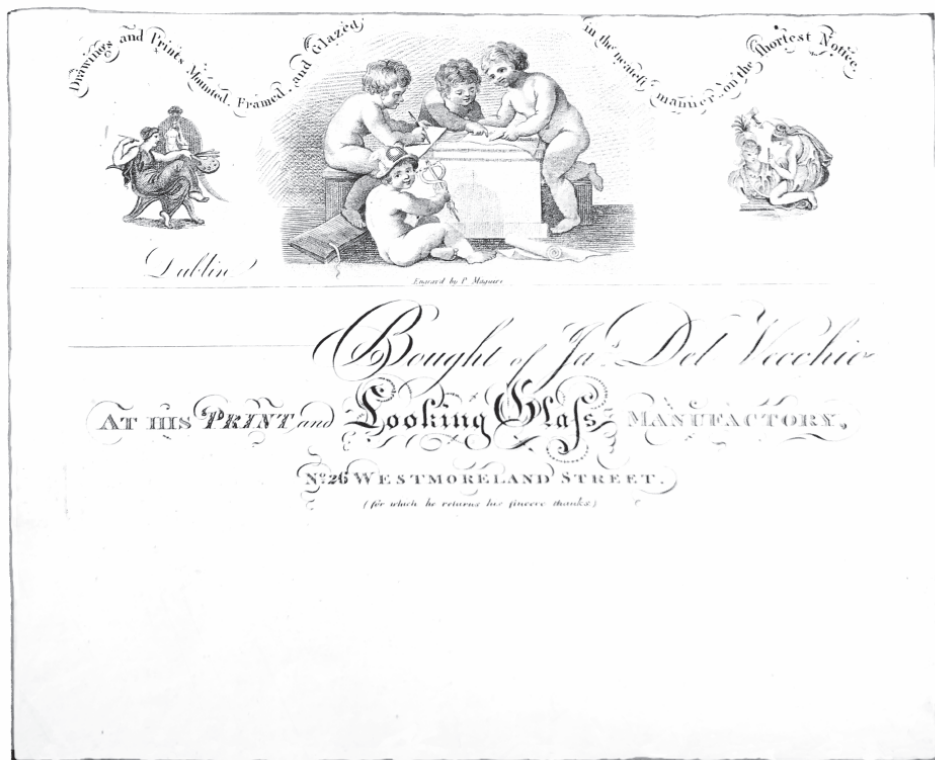 Drawings and Prints Mounted, Framed, and Glazed
in the neatest manner on the Shortest Notice.
Dublin
Engraved by P. Maguire
Bought of Jas. Del Vecchio
AT HIS PRINT and Looking Glaſs MANUFACTORY,
No. 26 WESTMORELAND STREET.
(for which he returns his ſincere thanks)